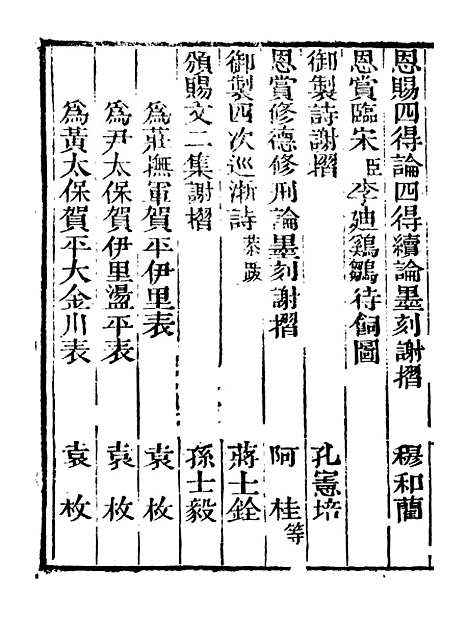 恩賜四得論四得續論墨刻謝摺 穆和藺
恩賞臨宋臣李廸鷄雛待飼圖
御製詩謝摺 孔憲培
恩賞修德修刑論墨刻謝摺 阿桂等
御製四次巡淛詩恭跋 蔣士銓
頒賜文二集謝摺 孫士毅
為莊撫軍賀平伊里表 袁枚
為尹太保賀伊里盪平表 袁枚
為黃太保賀平大金川表 袁枚